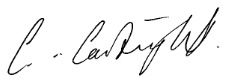 C. Cartwright.